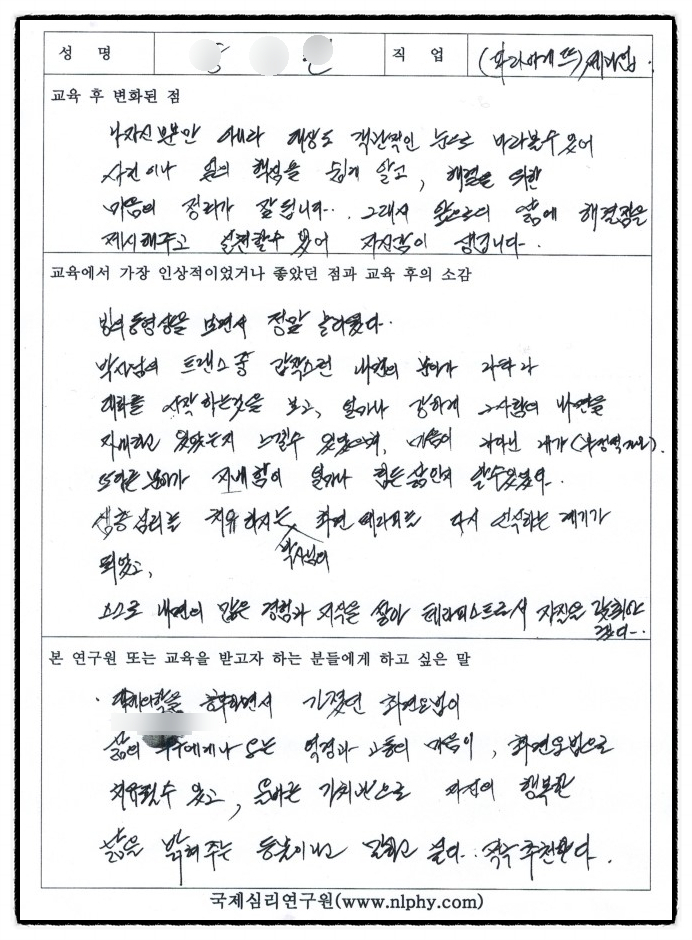 성 명
직 업
교육 후 변화된 점
나자신뿐만 아니라 객관적인 눈으로 바라볼수 있어
사건이나 일의 핵심을 쉽게 알고, 해결을 위한
마음의 정리가 잘 됩니다.. 그래서 앞으로의 삶에 해결점을
제시해주고 실천할수 있어 자신감이 생깁니다.
교육에서 가장 인상적이었거나 좋았던 점과 교육 후의 소감
동영상을 보면서 정말 놀라웠다.
박사님의 트랜스 중 갑작스런 내면의 분아가 나타나
대화를 시작하는것을 보고, 얼마나 강하게 그사람의 내면을
지배하고 있었는지 느낄수 있었으며, 마음이 내가
분아가 지배함이 얼마나 힘든 삶인지 알수있었다.
심층심리를 치유하시는 박사님의 최면 테라피를 다시 인식하는 계기가
되었고,
스스로 내면의 많은 경험과 지식을 쌓아 테라피스트로서 자질을 갖춰야
겠다..
본 연구원 또는 교육을 받고자 하는 분들에게 하고 싶은 말
공부하면서 가졌던 최면요법이
삶의 누구에게나 오는 역경과 고통의 마음이, 최면요법으로
치유될수 있고, 올바른 가치관으로 자신의 행복한
삶을 밝혀주는 등불이라고 말하고 싶다. 적극 추천한다.
국제심리연구원(www.nlphy.com)